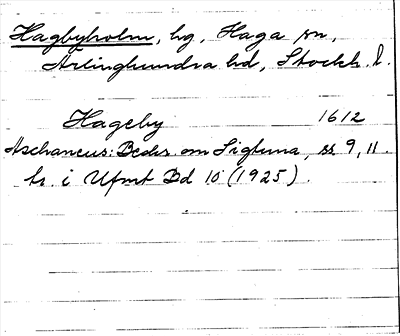 Hagbyholm, hg, Haga sn,
Ärlinghundra hd, Stockh. l.
Hageby 1612
Aschaneus: Beskr. om Sigtuna, ss 9, 11.
tr. i Ufmt Bd 10 (1925).